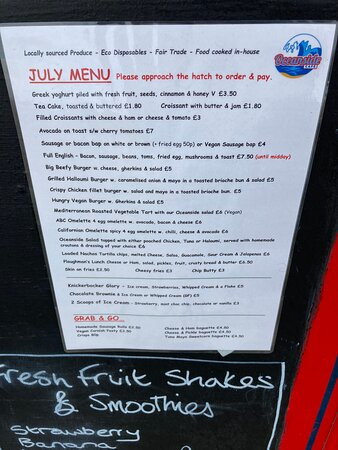 Locally sourced Produce - Eco Disposables - Fair Trade - Food cooked in-house
Oceanside
JULY MENU Please approach the hatch to order & pay.
Greek yoghurt piled with fresh fruit, seeds, cinnamon & honey V £3.50
Tea Cake, toasted & buttered £1.80 Croissant with butter & jam £1.80
Filled Croissants with cheese & ham or cheese & tomato £3
Avocado on toast s/w cherry tomatoes £7
Sausage or bacon bap on white or brown (+ fried egg 50p) or Vegan Sausage bap £4
Full English - Bacon, sausage, beans, toms, fried egg, mushrooms & toast £7.50 (until midday)
Big Beefy Burger w. cheese, gherkins & salad £5
Grilled Halloumi Burger w. caramelised onion & mayo in a toasted brioche bun & salad £5
Crispy Chicken fillet burger w. salad and mayo in a toasted brioche bun. £5
Hungry Vegan Burger w. Gherkins & salad £5
Mediterranean Roasted Vegetable Tart with our Oceanside salad £6 (Vegan)
ABC Omelette 4 egg omelette w. avocado, bacon & cheese £6
Californian Omelette spicy 4 egg omelette w. chilli, cheese & avocado £6
Oceanside Salad topped with either poached Chicken, Tuna or Haloumi, served with homemade
croutons & dressing of your choice £6
Loaded Nachos Tortilla chips, melted Cheese, Salsa, Guacamole, Sour Cream & Jalapenos £6
Ploughman's Lunch Cheese or Ham, salad, pickles, fruit, crusty bread & butter £6.50
Skin on fries £3.50 Cheesy fries £3 Chip Butty £3
Knickerbocker Glory - Ice cream, Strawberries, Whipped Cream & a Flake £5
Chocolate Brownie & Ice Cream or Whipped Cream £5
2 Scoops of Ice Cream - Strawberry, mint choc chip, chocolate or vanilla £3
GRAB & GO...
Homemade Sausage Rolls £3.50 Cheese & Ham Baguette £4.50
Vegan Cornish Pasty £3.50 Cheese & Pickle Baguette £4.50
Crisps 80p Tuna Mayo Sweetcorn Baguette £4.50
Fresh Fruit Shakes
& Smoothies
Strawberry
Banana